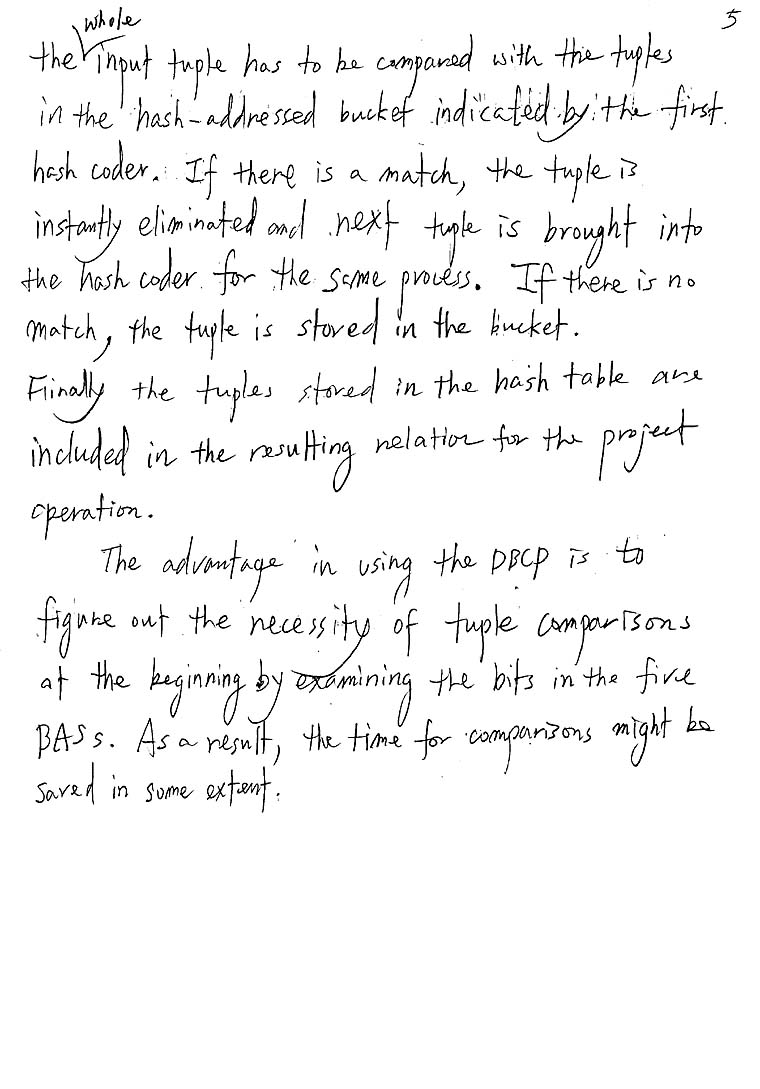 5
the whole input tuple has to be compared with the tuples
in the hash-addressed bucket indicated by the first
hash coder. If there is a match, the tuple is
instantly eliminated and next tuple is brought into
the hash coder for the same process. If there is no
match, the tuple is stored in the bucket.
Finally the tuples stored in the hash table are
included in the resulting relation for the project
operation.
The advantage in using the DBCP is to
figure out the necessity of tuple comparisons
at the beginning by examining the bits in the five
BASs. As a result, the time for comparisons might be
saved in some extent.